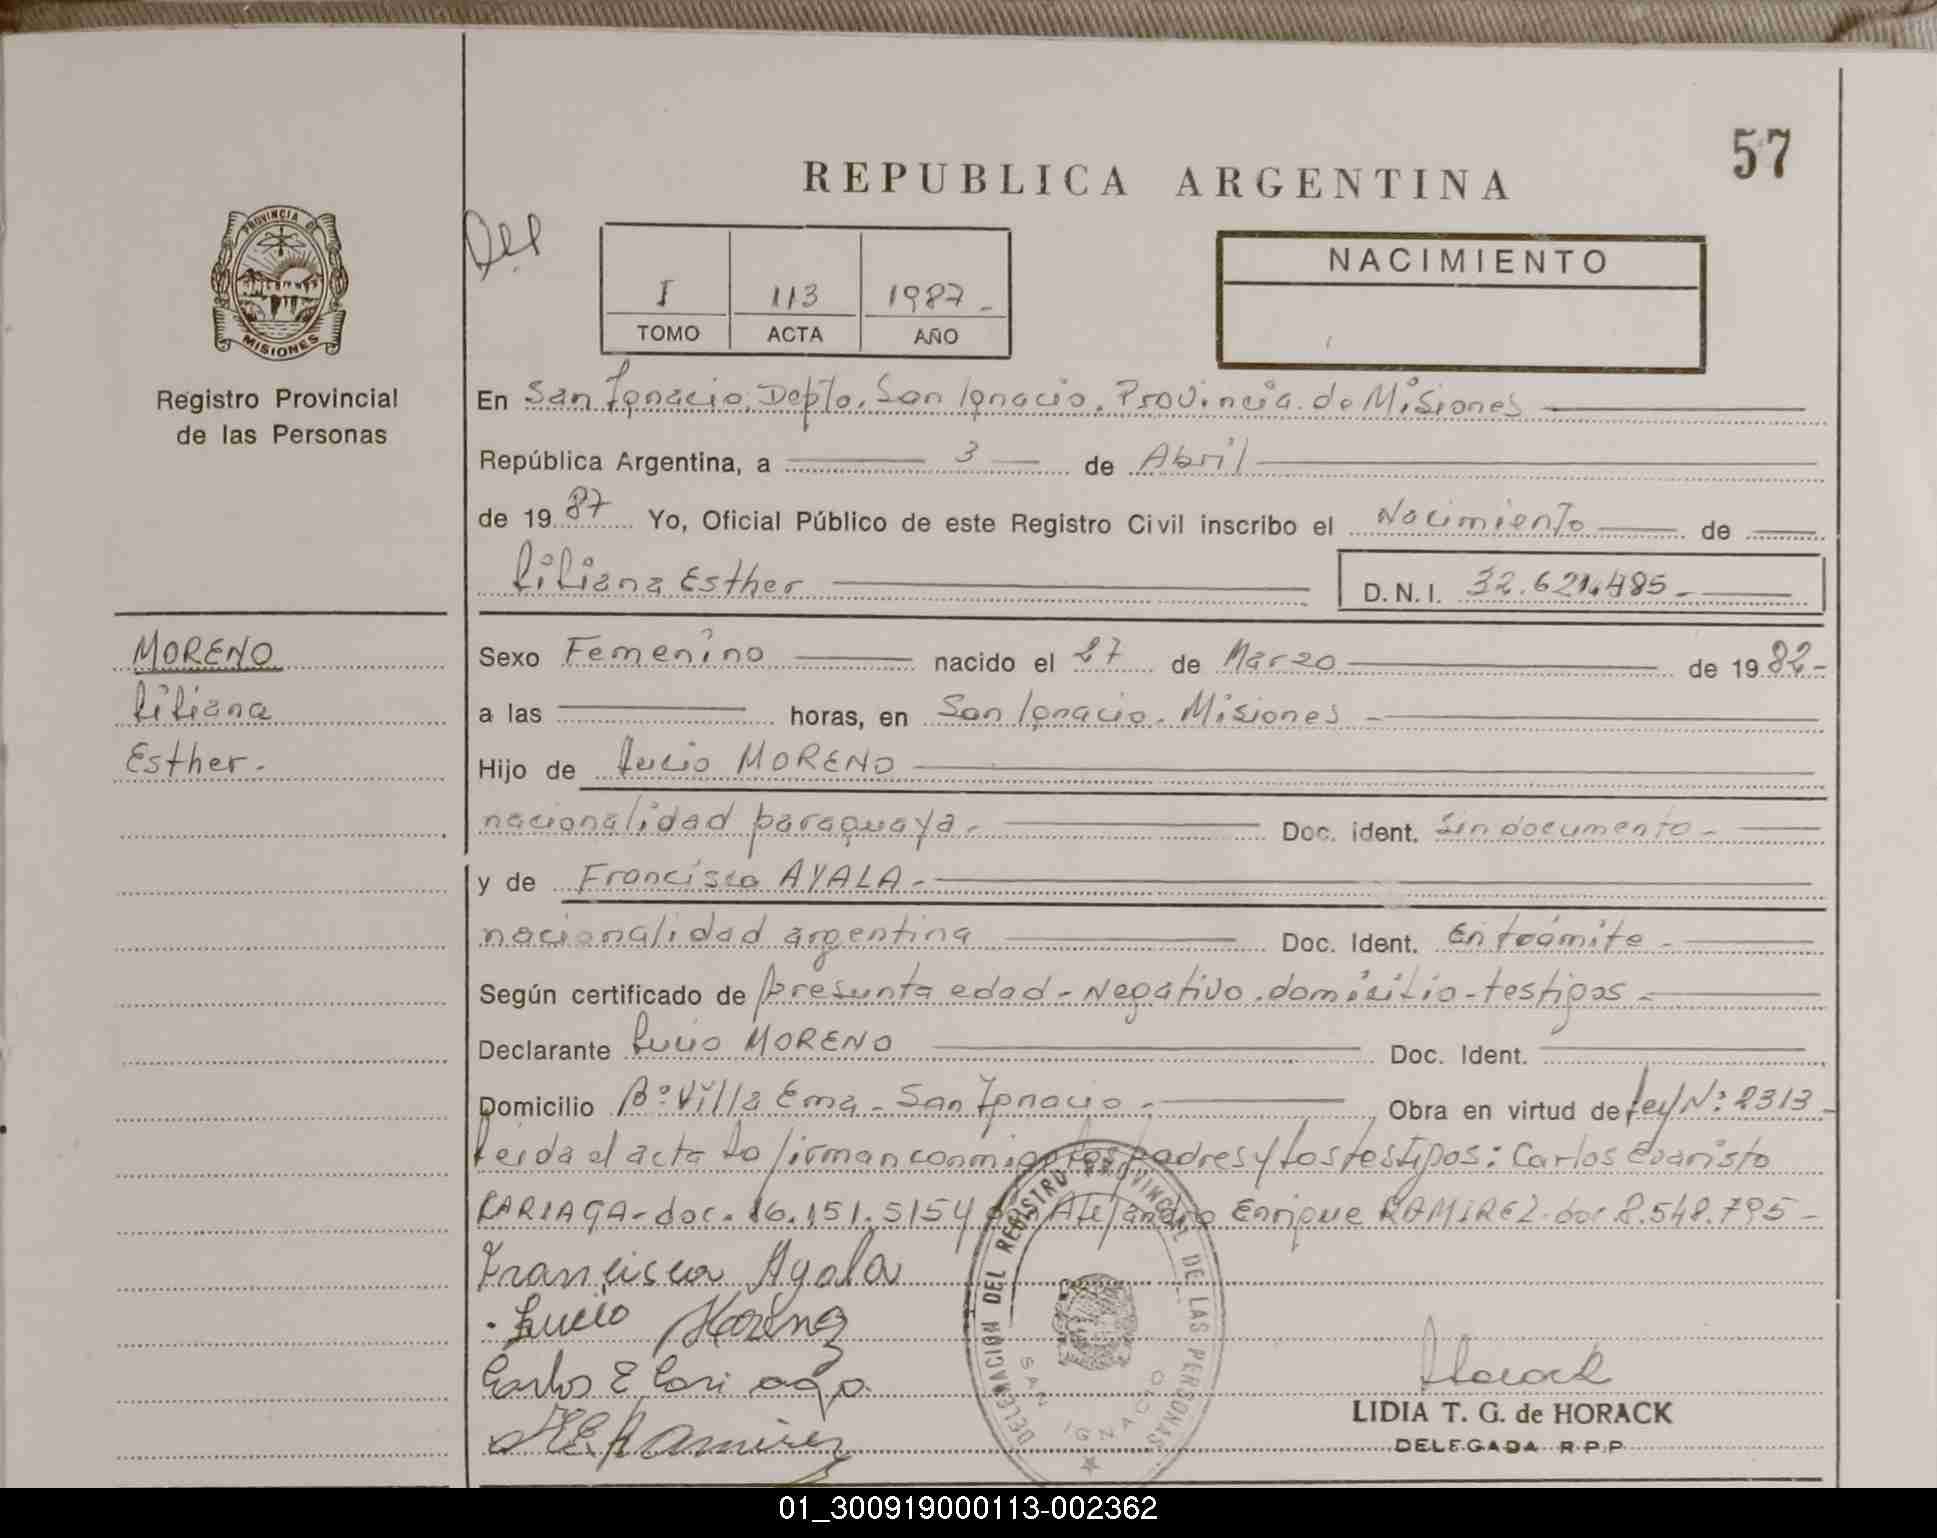 57
REPUBLICA ARGENTINA
PROVINCIA DE
MISIONES
Registro Provincial
de las Personas
I 113 1987-
TOMO ACTA AÑO
NACIMIENTO
En San Ignacio, Depto. San Ignacio, Provincia de Misiones
República Argentina, a 3 de Abril
de 1987 Yo, Oficial Público de este Registro Civil inscribo el Nacimiento de
Liliana Esther D.N.I. 32.621.485-
MORENO
Liliana
Esther.
Sexo Femenino nacido el 27 de Marzo de 1982-
a las horas, en San Ignacio. Misiones -
Hijo de Lucio MORENO
nacionalidad paraguaya- Doc. ident. Sin documento-
y de Francisca AYALA-
nacionalidad argentina Doc. Ident. En trámite-
Según certificado de presunta edad-Negativo.domicilio-testigos-
Declarante Lucio MORENO Doc. Ident.
Domicilio Bº Villa Ema-San Ignacio- Obra en virtud de ley Nº: 2313-
Leida el acta la firman conmigo los padres y los testigos: Carlos Evaristo
CARIAGA-doc. 16.151.5154 Alejandro Enrique RAMIREZ-doc 8.548.795-
Francisca Ayala
Lucio Moreno
Carlos E Cariaga
A E Ramirez
DELEGACIÓN DEL REGISTRO PROVINCIAL DE LAS PERSONAS
SAN IGNACIO
Horack
LIDIA T. G. de HORACK
DELEGADA R.P.P.
01_300919000113-002362